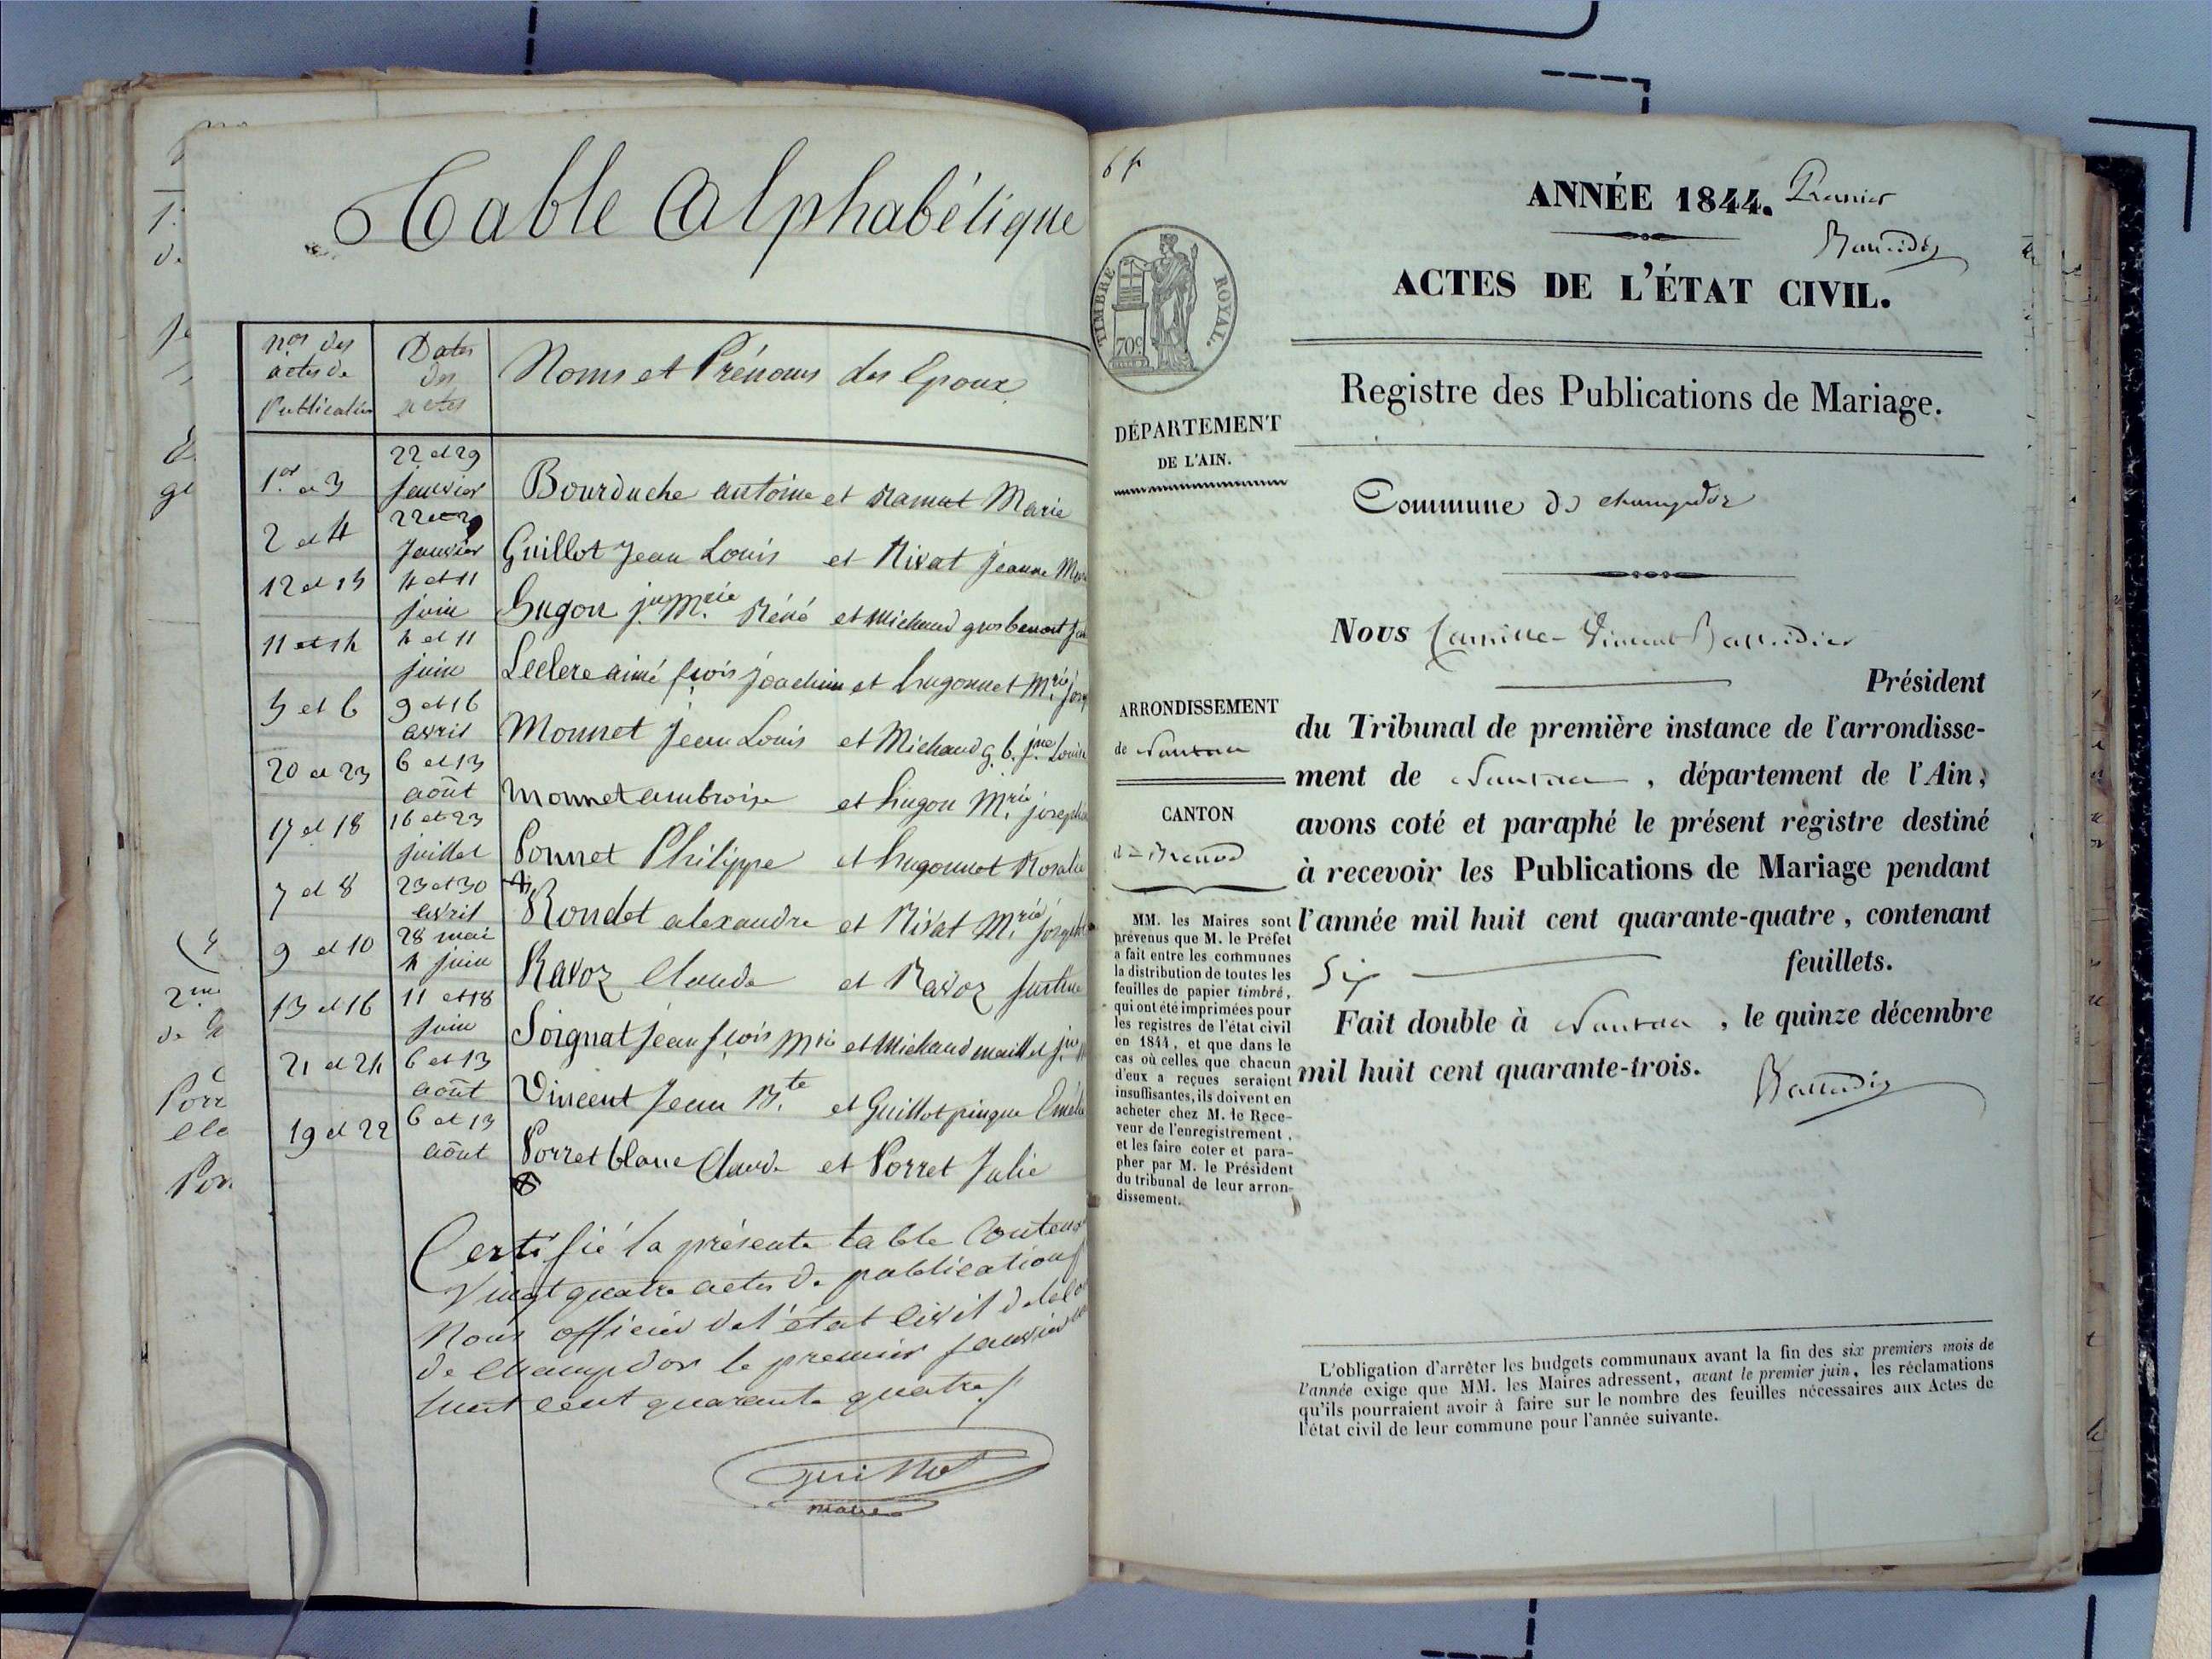 Table Alphabétique
nos des actes de Publication
Dates des actes
Noms et Prénoms des Epoux
1er et 3 22 et 29 janvier Bourduche antoine et Ramut Marie
2 et 4 22 et 29 Janvier Guillot Jean Louis et Nivat Jeanne
12 et 15 4 et 11 juin Hugon jn Mrie Réné et Michaud gros benoit
11 et 14 4 et 11 juin Leclerc aimé fçois joachim et hugonnet Mrie
5 et 6 9 et 16 avril Monnet Jean Louis et Michaud g. b. jne Louise
20 et 23 6 et 13 août Monnet ambroise et hugon Mrie
17 et 18 16 et 23 juillet Ponnet Philippe et hugonnet Rosalie
7 et 8 23 et 30 avril Rondet alexandre et Nivat Mrie
9 et 10 28 mai 4 juin Ravoz Claude et Ravoz Justine
13 et 16 11 et 18 juin Soignat Jean fçois Mrie et Michaud maillet
21 et 24 6 et 13 août Vincent Jean Bte et Guillot pingue
19 et 22 6 et 13 août Porret blanc Claude et Porret Julie
Certifié la présente table
Vingt quatre actes de publications
Nous officier de l'état civil de la
de Champdor le premier Janvier
huit cent quarante quatre
Guillot
maire
ANNÉE 1844. Premier
ACTES DE L'ÉTAT CIVIL.
TIMBRE ROYAL.
709
Registre des Publications de Mariage.
DÉPARTEMENT
DE L'AIN.
Commune de champdor
Nous Camille-Vincent
Président
ARRONDISSEMENT
de Nantua
CANTON
de Brenod
MM. les Maires sont
prévenus que M. le Préfet
a fait entre les communes
la distribution de toutes les
feuilles de papier timbré,
qui ont été imprimées pour
les registres de l'état civil
en 1844, et que dans le
cas où celles que chacun
d'eux a reçues seraient
insuffisantes, ils doivent en
acheter chez M. le Rece-
veur de l'enregistrement,
et les faire coter et para-
pher par M. le Président
du tribunal de leur arron-
dissement.
du Tribunal de première instance de l'arrondisse-
ment de Nantua, département de l'Ain,
avons coté et paraphé le présent registre destiné
à recevoir les Publications de Mariage pendant
l'année mil huit cent quarante-quatre, contenant
Six feuillets.
Fait double à Nantua, le quinze décembre
mil huit cent quarante-trois.
L'obligation d'arrêter les budgets communaux avant la fin des six premiers mois de
l'année exige que MM. les Maires adressent, avant le premier juin, les réclamations
qu'ils pourraient avoir à faire sur le nombre des feuilles nécessaires aux Actes de
l'état civil de leur commune pour l'année suivante.